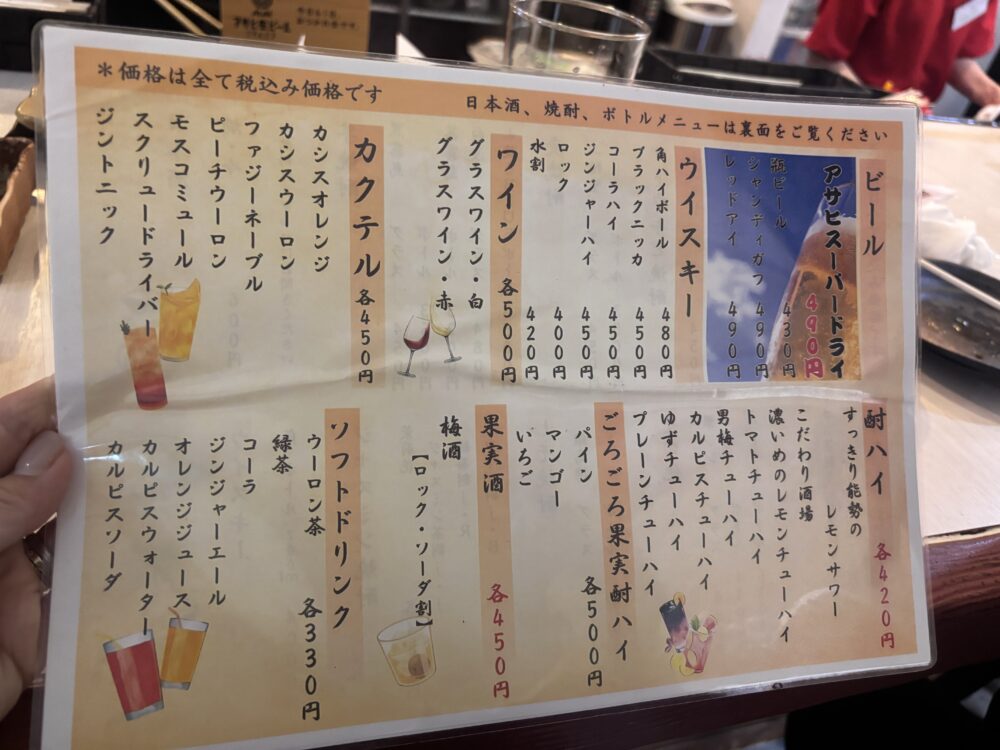 *価格は全て税込み価格です
日本酒、焼酎、ボトルメニューは裏面をご覧ください
ビール
アサヒスーパードライ
490円
瓶ビール 430円
シャンディガフ 490円
レッドアイ 490円
ウイスキー
角ハイボール 480円
ブラックニッカ 450円
コーラハイ 450円
ジンジャーハイ 450円
ロック 400円
水割 420円
ワイン 各500円
グラスワイン・白
グラスワイン・赤
カクテル 各450円
カシスオレンジ
カシスウーロン
ファジーネーブル
ピーチウーロン
モスコミュール
スクリュードライバー
ジントニック
酎ハイ 各420円
すっきり能勢の
レモンサワー
こだわり酒場
濃いめのレモンチューハイ
トマトチューハイ
男梅チューハイ
カルピスチューハイ
ゆずチューハイ
プレーンチューハイ
ごろごろ果実酎ハイ
各500円
パイン
マンゴー
いちご
果実酒 各450円
梅酒
【ロック・ソーダ割】
ソフトドリンク
各330円
ウーロン茶
緑茶
コーラ
ジンジャーエール
オレンジジュース
カルピスウォーター
カルピスソーダ